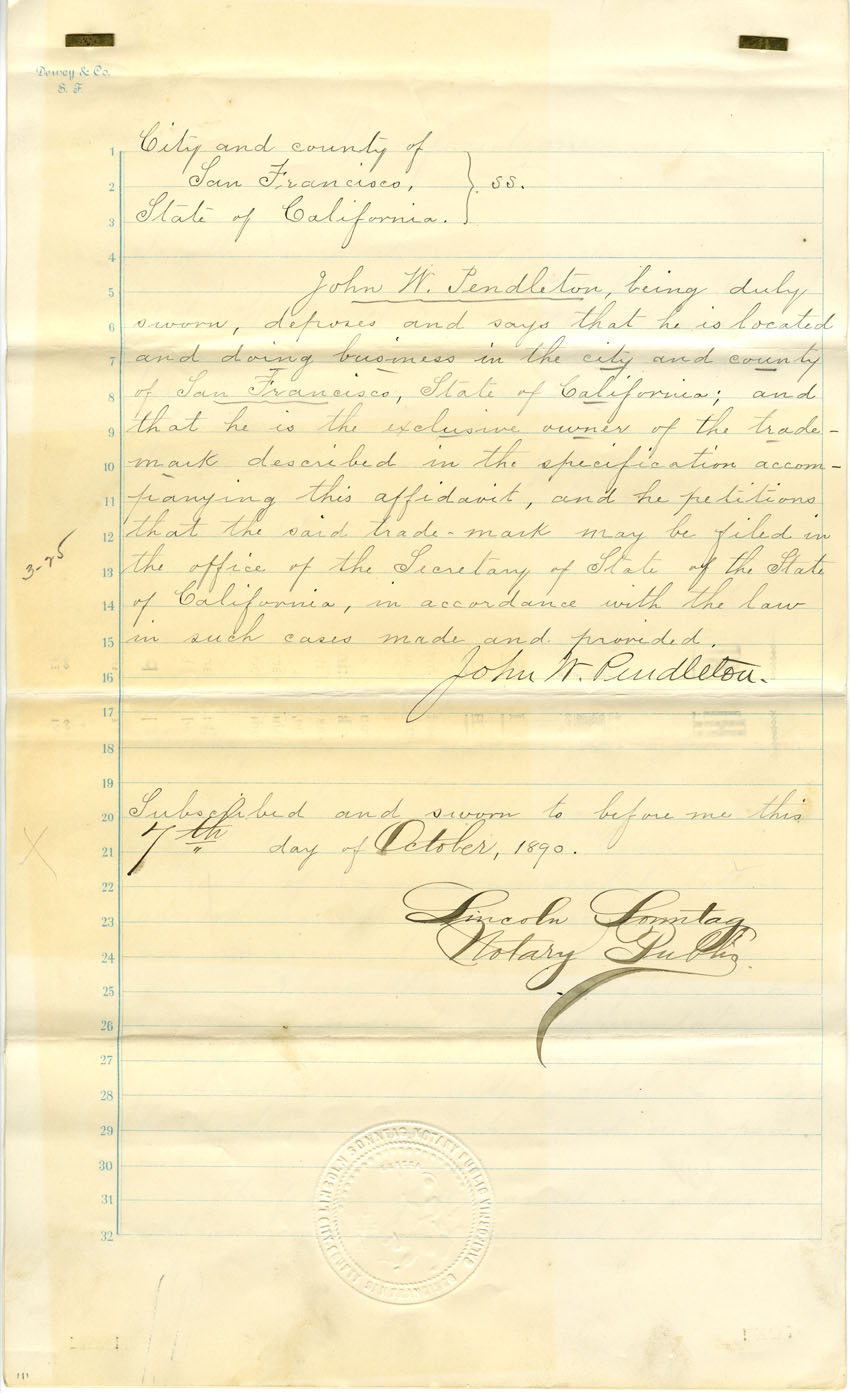 Dewey & Co.
S. F.
1 City and county of
2 San Francisco, } ss.
3 State of California.
4
5 John W. Pendleton, being duly
6 sworn, deposes and says that he is located
7 and doing business in the city and county
8 of San Francisco, State of California; and
9 that he is the exclusive owner of the trade-
10 mark described in the specification accom-
11 panying this affidavit, and he petitions
12 that the said trade-mark may be filed in
13 the office of the Secretary of State of the State
14 of California, in accordance with the law
15 in such cases made and provided.
16 John W. Pendleton.
17
18
19
20 Subscribed and sworn to before me this
21 7th day of October, 1890.
22
23 Lincoln Sonntag
24 Notary Public
25
26
27
28
29
30
31
32
3-25
X
LINCOLN SONNTAG, NOTARY PUBLIC
CITY AND COUNTY SAN FRANCISCO